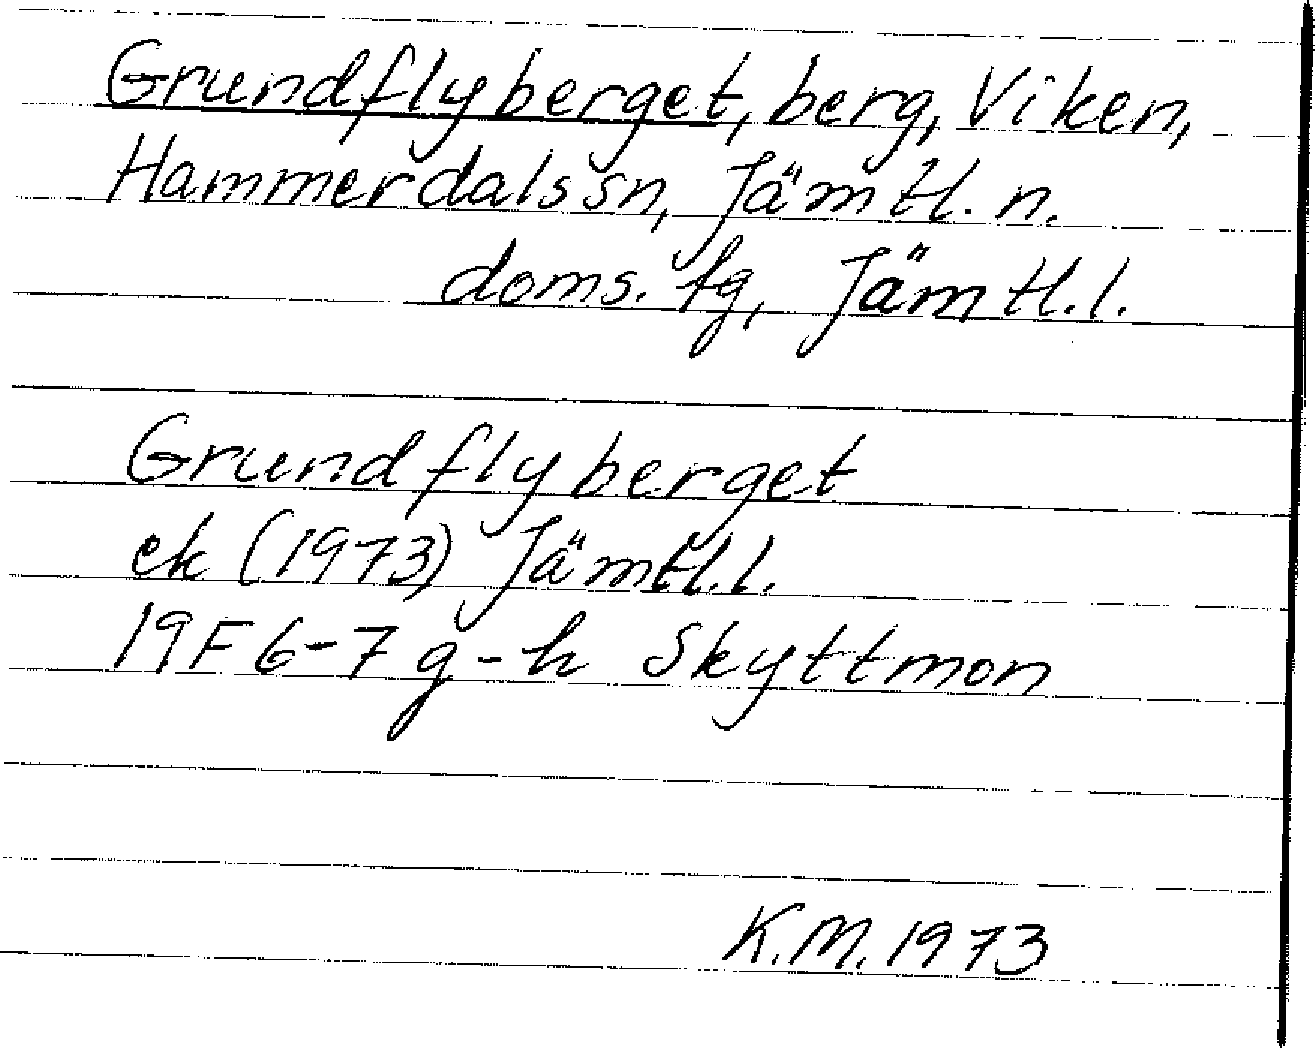 Grundflyberget, berg, Viken,
Hammerdals sn, Jämtl. n.
doms. fg, Jämtl. l.
Grundflyberget
ek (1973) Jämtl. l.
19F 6-7 g-h Skyttmon
K.M. 1973